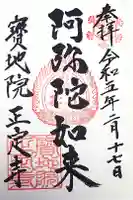 奉拝 令和五年二月十七日
阿弥陀如来
寶地院 正定寺